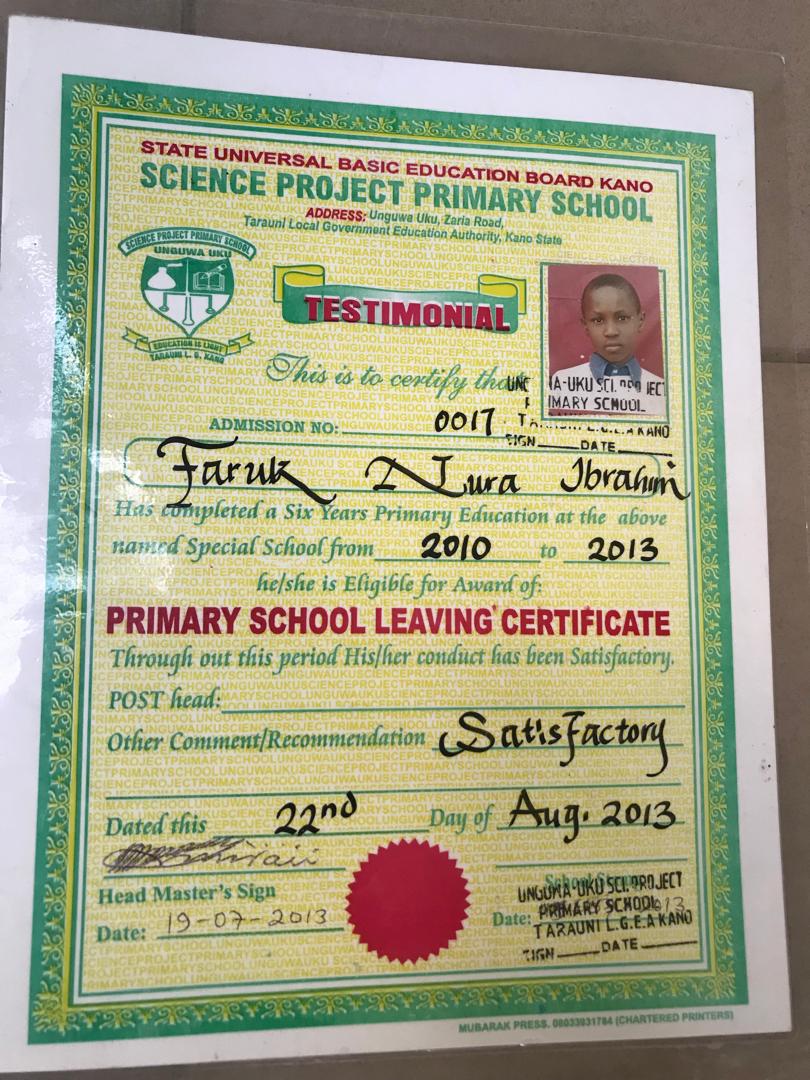 STATE UNIVERSAL BASIC EDUCATION BOARD KANO
SCIENCE PROJECT PRIMARY SCHOOL
ADDRESS: Unguwa Uku, Zaria Road,
Tarauni Local Government Education Authority, Kano State
SCIENCE PROJECT PRIMARY SCHOOL
UNGUWA UKU
EDUCATION IS LIGHT
TARAUNI L. G. KANO
TESTIMONIAL
This is to certify that
A-UKU SCI. PROJECT
PRIMARY SCHOOL
TARAUNI L.G.E.A KANO
SIGN DATE
ADMISSION NO: 0017
Faruk Nura Ibrahim
Has completed a Six Years Primary Education at the above
named Special School from 2010 to 2013
he/she is Eligible for Award of:
PRIMARY SCHOOL LEAVING CERTIFICATE
Through out this period His/her conduct has been Satisfactory.
POST head:
Other Comment/Recommendation Satisfactory
Dated this 22nd Day of Aug. 2013
Head Master's Sign
Date: 19-07-2013
School
UNGUWA-UKU SCI. PROJECT
Date: PRIMARY SCHOOL 13
TARAUNI L.G.E.A KANO
SIGN DATE
MUBARAK PRESS. 08033931784 (CHARTERED PRINTERS)